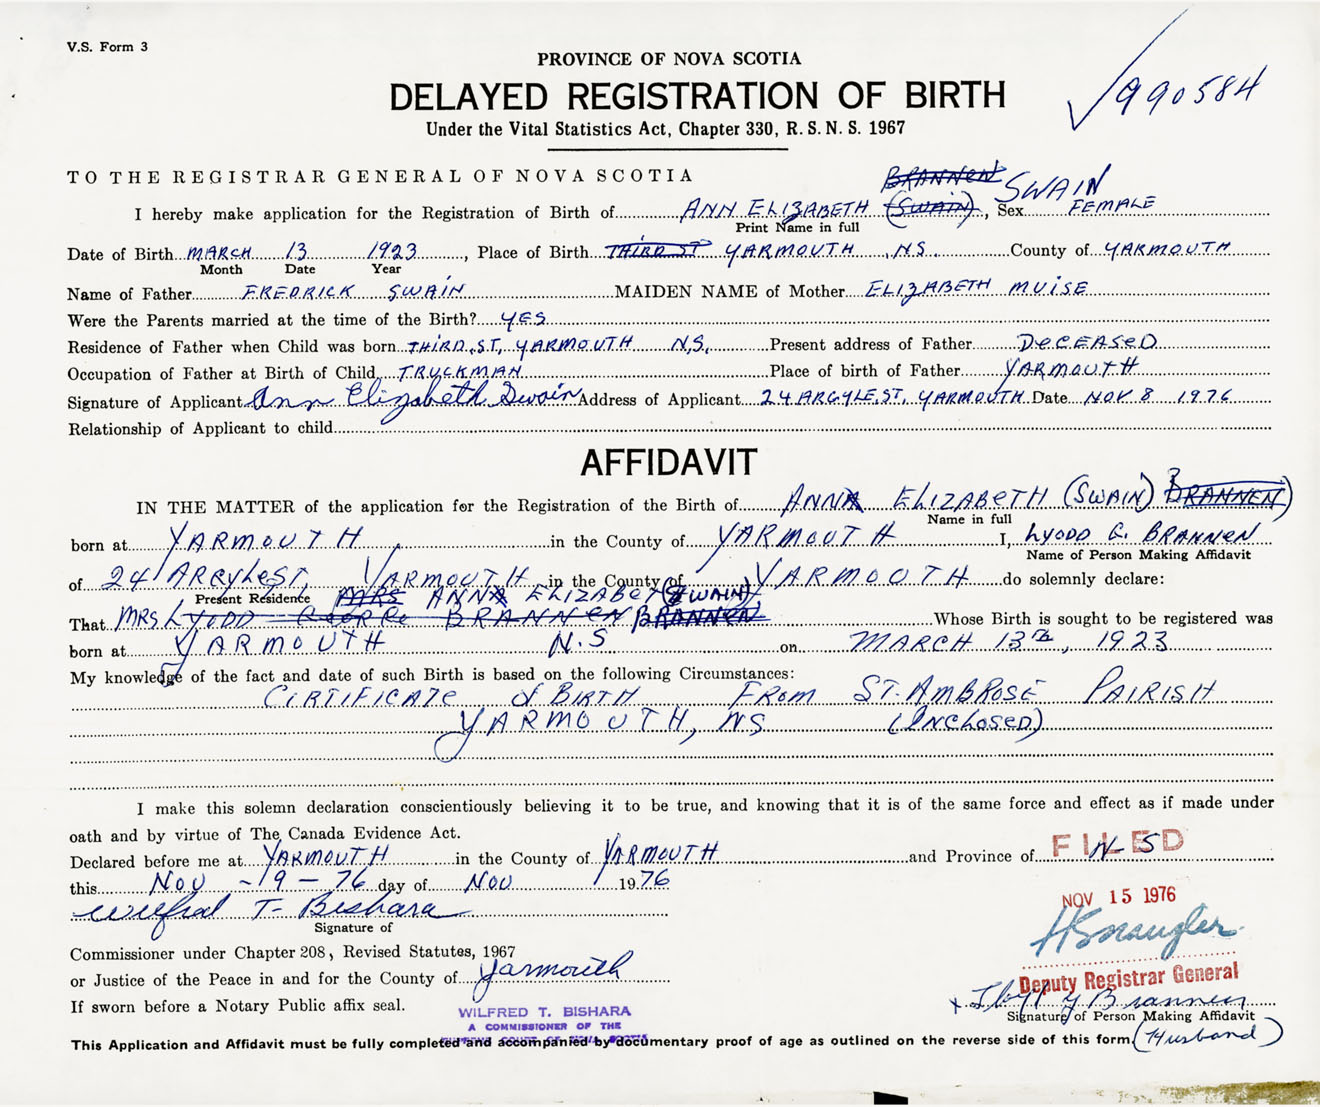 V.S. Form 3
PROVINCE OF NOVA SCOTIA
DELAYED REGISTRATION OF BIRTH
990584
Under the Vital Statistics Act, Chapter 330, R.S.N.S. 1967
TO THE REGISTRAR GENERAL OF NOVA SCOTIA
BRANNEN SWAIN
I hereby make application for the Registration of Birth of ANN ELIZABETH (SWAIN), Sex FEMALE
Print Name in full
Date of Birth MARCH 13 1923, Place of Birth THIRD ST YARMOUTH N.S. County of YARMOUTH
Month Date Year
Name of Father FREDRICK SWAIN MAIDEN NAME of Mother ELIZABETH MUISE
Were the Parents married at the time of the Birth? YES
Residence of Father when Child was born THIRD ST, YARMOUTH N.S. Present address of Father DECEASED
Occupation of Father at Birth of Child TRUCKMAN Place of birth of Father YARMOUTH
Signature of Applicant Ann Elizabeth Swain Address of Applicant 24 ARGYLE ST, YARMOUTH Date NOV 8 1976
Relationship of Applicant to child
AFFIDAVIT
IN THE MATTER of the application for the Registration of the Birth of ANNA ELIZABETH (SWAIN) BRANNEN)
Name in full
born at YARMOUTH in the County of YARMOUTH I, LYODD G. BRANNEN
Name of Person Making Affidavit
of 24 ARGYLE ST, YARMOUTH in the County of YARMOUTH do solemnly declare:
Present Residence MRS ANNA ELIZABET (SWAIN)
That MRS LYODD GEORGE BRANNEN BRANNEN Whose Birth is sought to be registered was
born at YARMOUTH N.S on MARCH 13th, 1923
My knowledge of the fact and date of such Birth is based on the following Circumstances:
CIRTIFICATE of BIRTH FROM ST. AMBROSE PAIRISH
YARMOUTH, NS (INCLOSED)
I make this solemn declaration conscientiously believing it to be true, and knowing that it is of the same force and effect as if made under
oath and by virtue of The Canada Evidence Act.
Declared before me at YARMOUTH in the County of YARMOUTH and Province of N-S
FILED
this NOV -19-76 day of NOV 1976
NOV 15 1976
Wilfred T. Bishara
Signature of
Commissioner under Chapter 208, Revised Statutes, 1967
or Justice of the Peace in and for the County of Yarmouth
Deputy Registrar General
If sworn before a Notary Public affix seal.
WILFRED T. BISHARA
A COMMISSIONER OF THE
SUPREME COURT OF NOVA SCOTIA
Signature of Person Making Affidavit
This Application and Affidavit must be fully completed and accompanied by documentary proof of age as outlined on the reverse side of this form.
(Husband)